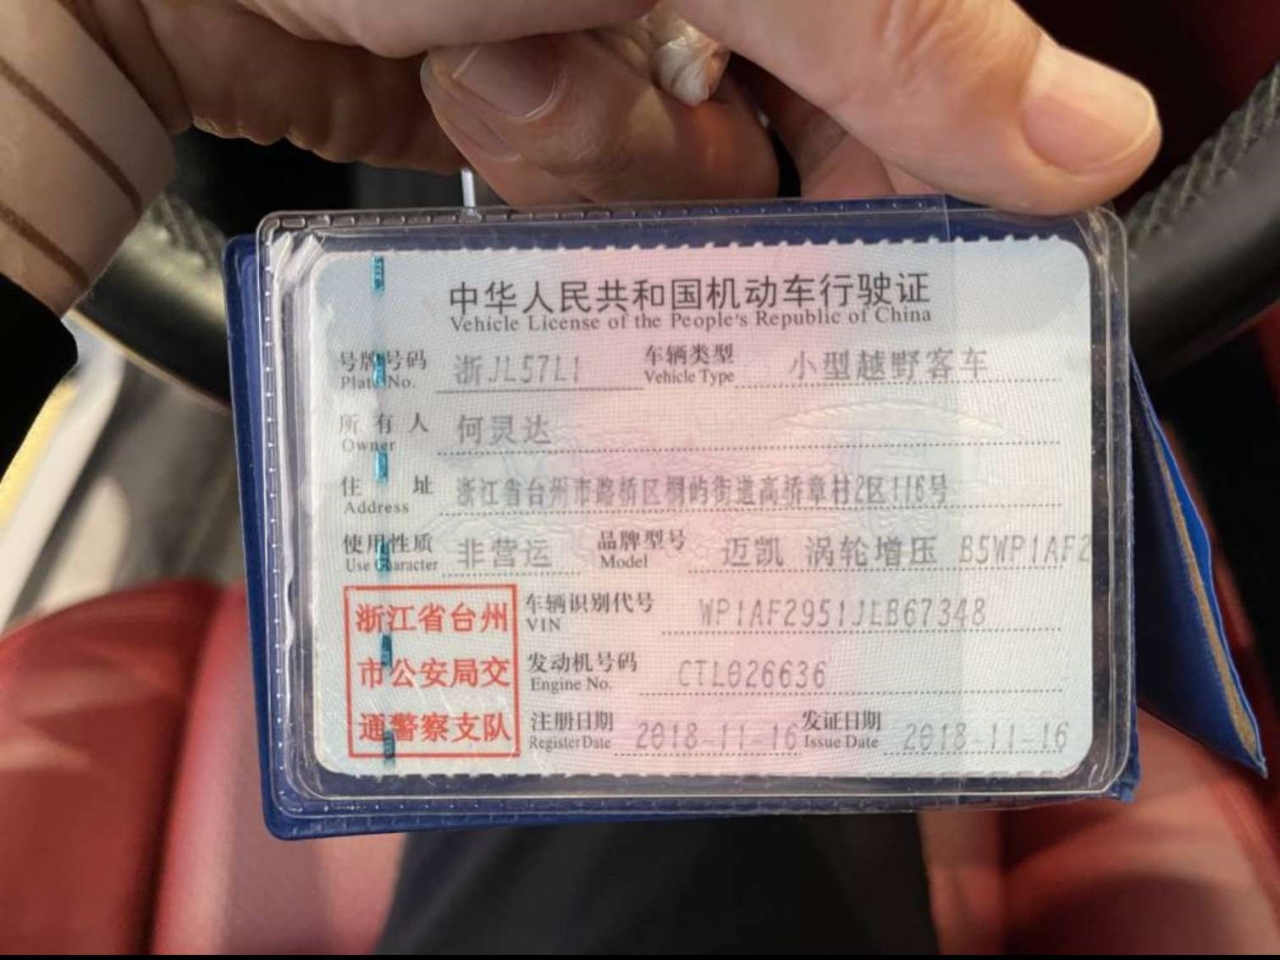 中华人民共和国机动车行驶证
Vehicle License of the People's Republic of China
号牌号码 浙JL57L1 车辆类型 小型越野客车
Plate No. Vehicle Type
所有人 何灵达
Owner
住址 浙江省台州市路桥区桐屿街道高桥章村2区116号
Address
使用性质 非营运 品牌型号 迈凯 涡轮增压 B5WP1AF2
Use Character Model
车辆识别代号 WP1AF2951JLB67348
VIN
发动机号码 CTL026636
Engine No.
注册日期 2018-11-16 发证日期 2018-11-16
Register Date Issue Date
浙江省台州
市公安局交
通警察支队